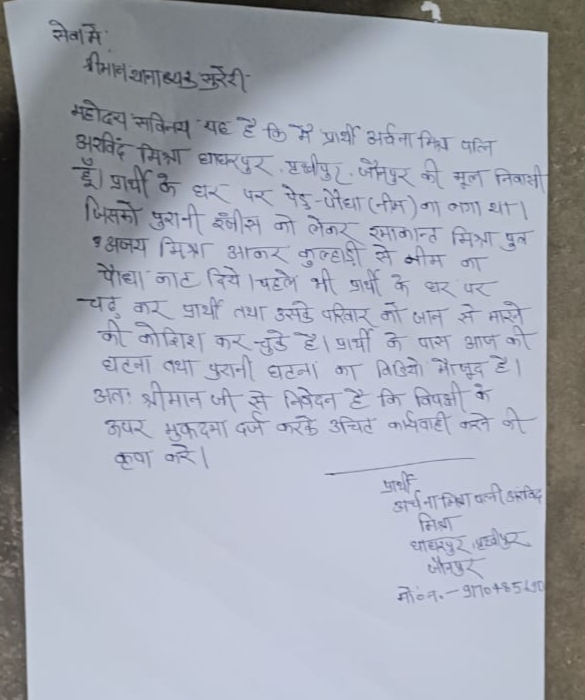 सेवा में,
श्रीमान थानाध्यक्ष सुरेरी
महोदय सविनय यह है कि मैं प्रार्थी अर्चना मिश्रा पत्नि
अरविंद मिश्रा धाधरपुर, पृथ्वीपुर, जौनपुर की मूल निवासी
हूँ। प्रार्थी के घर पर पेड़-पौधा (नीम) का लगा था।
जिसको पुरानी रंजीस को लेकर रमाकान्त मिश्रा पुत्र
अजय मिश्रा आकर कुल्हाड़ी से नीम का
पौधा काट दिये। पहले भी प्रार्थी के घर पर
चढ़ कर प्रार्थी तथा उसके परिवार को जान से मारने
की कोशिश कर चुके है। प्रार्थी के पास आज की
घटना तथा पुरानी घटना का विडियो मौजूद है।
अतः श्रीमान जी से निवेदन है कि विपक्षी के
ऊपर मुकदमा दर्ज करके उचित कार्यवाही करने की
कृपा करे।
प्रार्थी
अर्चना मिश्रा पत्नी अरविंद
मिश्रा
धाधरपुर, पृथ्वीपुर
जौनपुर
मो०न.-